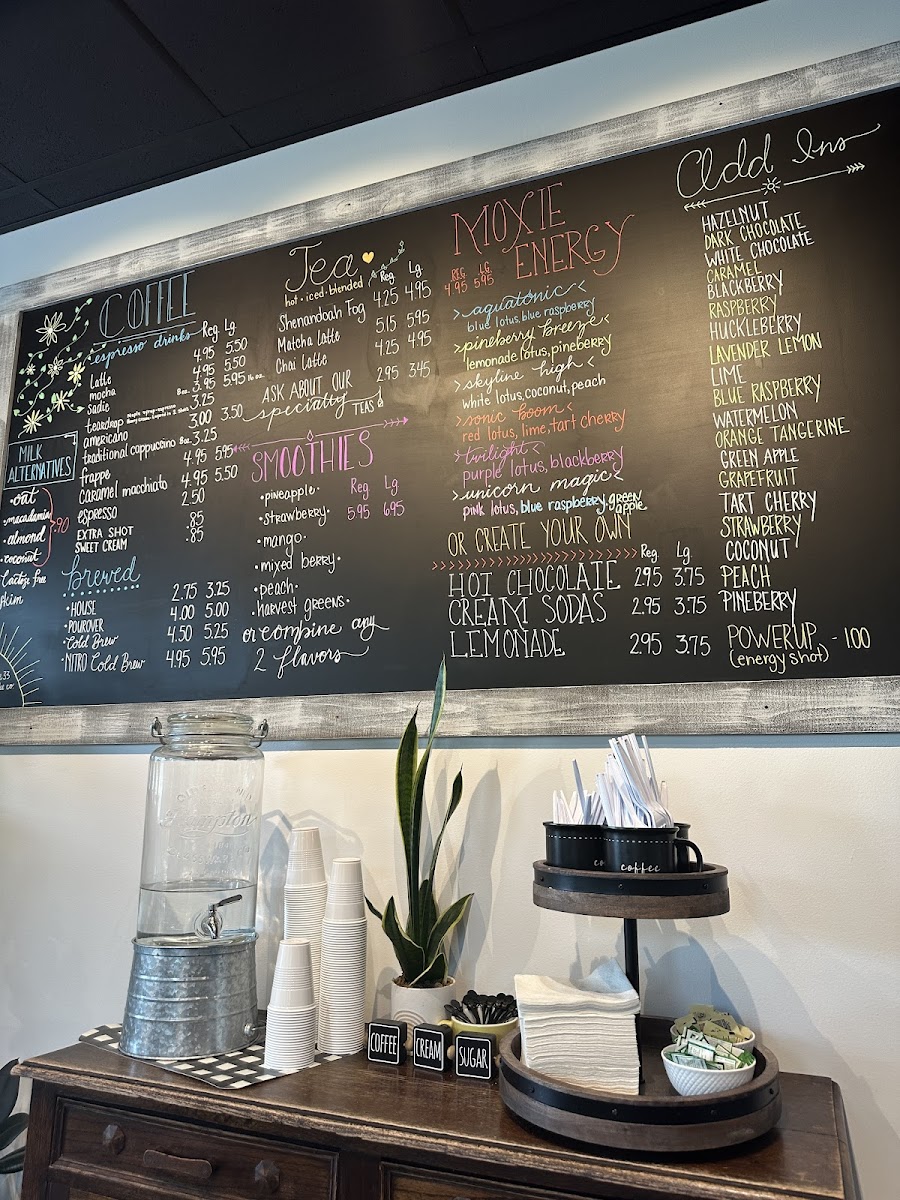 COFFEE
espresso drinks Reg Lg
latte 4.95 5.50
mocha 4.95 5.50
Sadie 8oz. 3.95 5.95 16oz.
teardrop 3.25
americano 3.00 3.50
traditional cappuccino 8oz. 3.25
frappe 4.95 5.95
caramel macchiato 4.95 5.50
espresso 2.50
EXTRA SHOT .85
SWEET CREAM .85
MILK
ALTERNATIVES
•oat
•macadamia
•almond
•coconut
.90
lactose free
skim
brewed
•HOUSE 2.75 3.25
•POUROVER 4.00 5.00
•Cold Brew 4.50 5.25
•NITRO Cold Brew 4.95 5.95
Tea
hot•iced•blended Reg. Lg.
Shenandoah Fog 4.25 4.95
Matcha latte 5.15 5.95
Chai latte 4.25 4.95
ASK ABOUT OUR 2.95 3.45
specialty TEAS
SMOOTHIES
Reg Lg
5.95 6.95
•pineapple•
•strawberry•
•mango•
•mixed berry•
•peach•
•harvest greens•
or combine any
2 flavors
MOXIE
ENERGY
REG. LG.
4.95 5.95
>aquatonic<
blue lotus, blue raspberry
>pineberry breeze<
lemonade lotus, pineberry
>skyline high<
white lotus, coconut, peach
>sonic boom<
red lotus, lime, tart cherry
>twilight<
purple lotus, blackberry
>unicorn magic<
pink lotus, blue raspberry, green apple
OR CREATE YOUR OWN
Reg. Lg.
HOT CHOCOLATE 2.95 3.75
CREAM SODAS 2.95 3.75
LEMONADE 2.95 3.75
Add Ins
HAZELNUT
DARK CHOCOLATE
WHITE CHOCOLATE
CARAMEL
BLACKBERRY
RASPBERRY
HUCKLEBERRY
LAVENDER LEMON
LIME
BLUE RASPBERRY
WATERMELON
ORANGE TANGERINE
GREEN APPLE
GRAPEFRUIT
TART CHERRY
STRAWBERRY
COCONUT
PEACH
PINEBERRY
POWERUP - 1.00
(energy shot)
coffee
COFFEE
CREAM
SUGAR